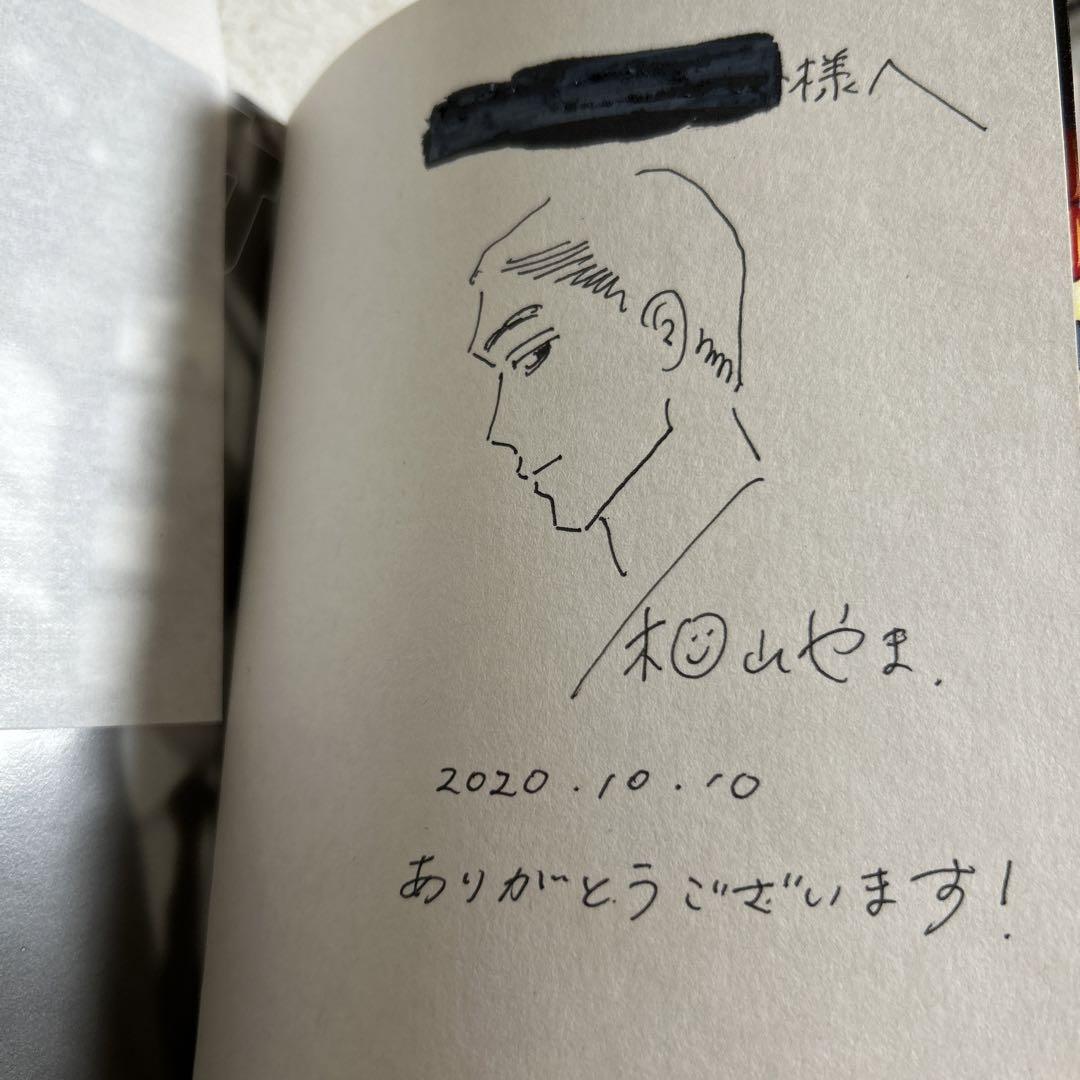 様へ
相山やま.
2020.10.10
ありがとうございます!